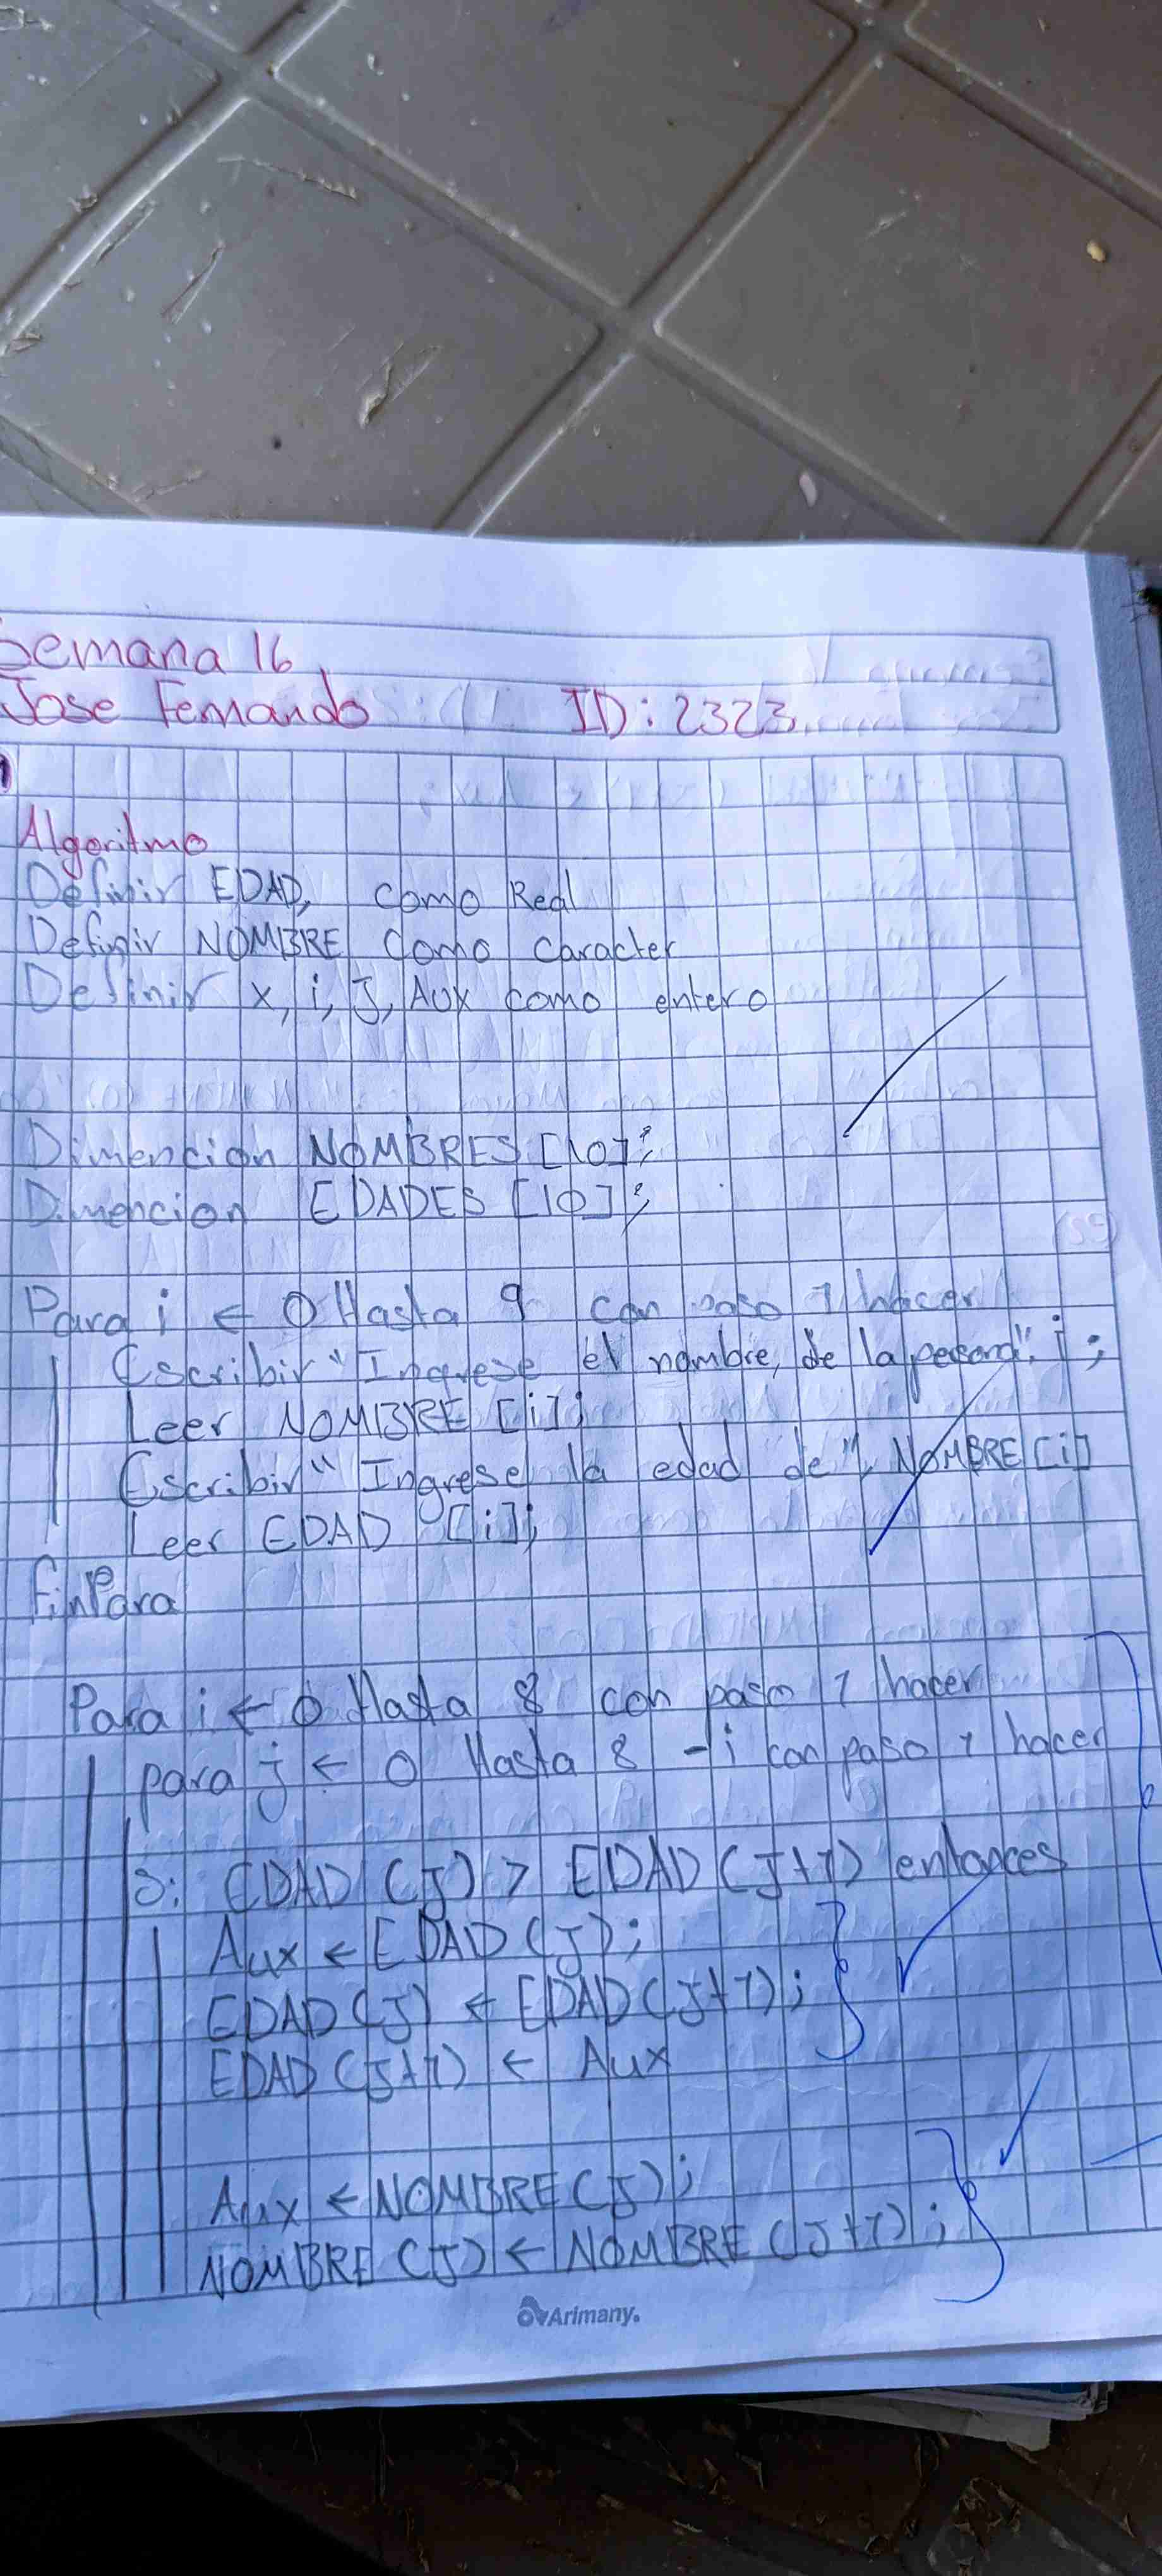 Semana 16
Jose Fernando ID: 2323
1
Algoritmo
Definir EDAD, como Real
Definir NOMBRE como caracter
Definir x, i, J, Aux como entero
Dimencion NOMBRES [10];
Dimencion EDADES [10];
Para i ← 0 Hasta 9 con paso 1 hacer
Escribir "Ingrese el nombre, de la persona", i ;
Leer NOMBRE [i];
Escribir "Ingrese la edad de", NOMBRE [i]
Leer EDAD [i];
FinPara
Para i ← 0 Hasta 8 con paso 1 hacer
para j ← 0 Hasta 8 - i con paso 1 hacer
Si EDAD (J) > EDAD (J+1) entonces
Aux ← EDAD (J);
EDAD (J) ← EDAD (J+1);
EDAD (J+1) ← Aux
Aux ← NOMBRE (J);
NOMBRE (J) ← NOMBRE (J+1);
Arimany.